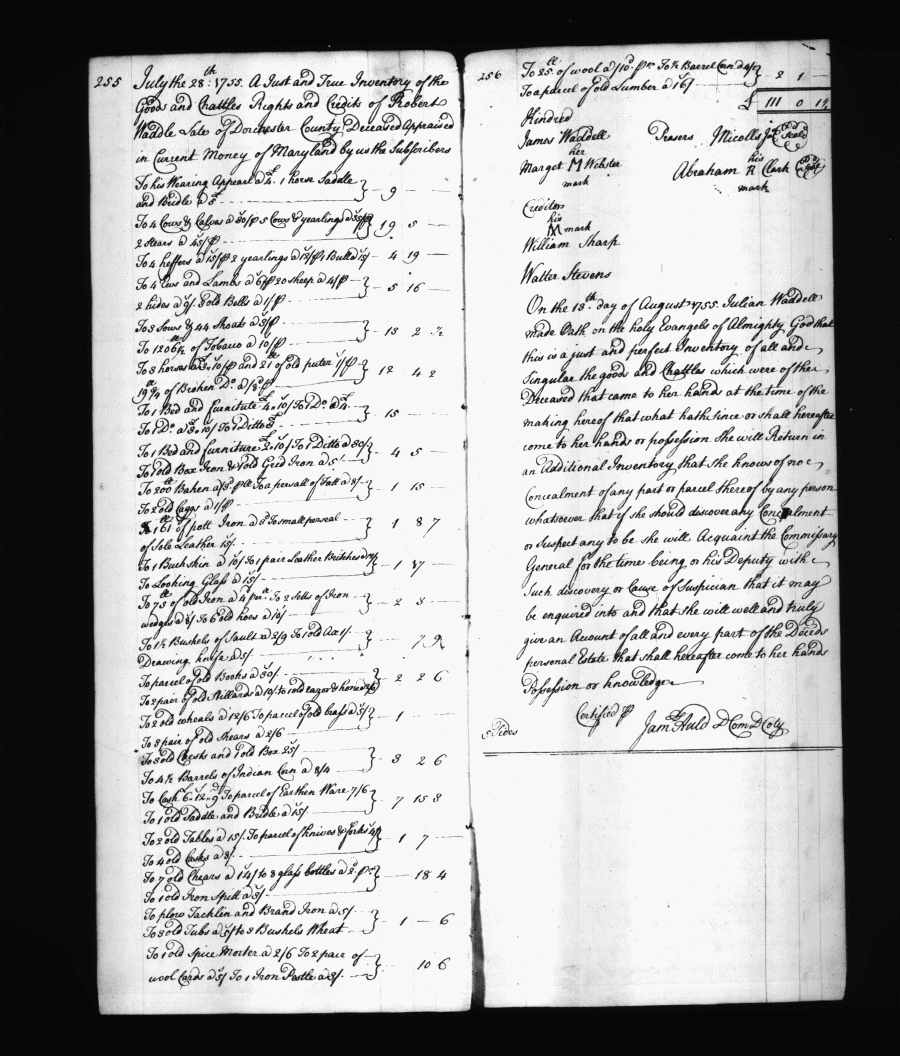 255
July the 28th 1755. A Just and True Inventory of the
Goods and Chattles Rights and Credits of Robert
Waddle Late of Dorchester County Deceased Appraised
in Current Money of Maryland by us the Subscribers
To his Wearing Appearl a £4. 1 horse Saddle
and Bridle a 5£ } 9 — —
To 4 Cows & Calves a 50/ p 5 Cows & yearlings a
2 Stears a 45/ p } 19 5 —
To 4 heffers a 15/ p 2 yearlings a 1 Bull a } 4 19 —
To 4 Ews and Lambs a 6/ p 20 sheep a 4/ p
2 hides a 9/. 3 old Bells a 1/ p } 5 16 —
To 3 Sows & 44 Shoats a 3/ p
To 1206½ of Tobaco a 10/ p } 13 2 ½
To 3 horses a £3..10/ p and 21 lb of old puter 1/ p
19¾ lb of Broken Do. a } 12 4 2
To 1 Bed and furnitute £4..10/ To 1 Do. a £4
To 1 Do. a £3..10/ To 1 Ditto £3 } 15 — —
To 1 Bed and furniture £2..10/ To 1 Ditto a 30/
To 1 old Box Iron & 1 old Grid Iron a 5/ } 4 5 —
To 200 lb Baken a To a persall of Fatt a 8/
To 2 old Caggs a 1/ p } 1 15 —
161 lb of pott Iron a To small perseal
of Sole Leather 15/ } 1 8 7
To 1 Buck skin a 10/ To 1 pair Leather Britches a
To Looking Glass a 15/ } 1 17 —
To 75 lb of old Iron a To 2 Setts of Iron
wedges a 8/ To 6 old hoes a 10/ } 2 3 —
To 1½ Bushels of Sault a 2/9 To 1 old Ax 1/
Drawing knife a 5/ } 7 9½
To parcel of old Books a 30/
To 2 pair of old Stillards a 10/ to 1 old razor & hone a } 2 2 6
To 2 old wheals a 12/6 To parcel of old brass a 5/
To 3 pair of old Shears a 2/6 } 1 — —
To 3 old Chests and 1 old Box 25/
To 4½ Barrels of Indian Corn a 8/4 } 3 2 6
To Cash 6..12..9 To parcel of Earthen Ware 7/6
To 1 old Saddle and Bridle a 15/ } 7 15 3
To 2 old Tables a 15/. To parcel of knives & forks
To 4 old Casks a 8/ } 1 7 —
To 7 old Chears a 14/ to 8 glass bottles a
To 1 old Iron Spitt a 3/ } — 18 4
To plow Tacklin and Brand Iron a 5/
To 3 old Tubs a to 3 Bushels Wheat } 1 — 6
To 1 old Spice Morter a 2/6 To 2 pair of
wool Cards a 5/ To 1 Iron Pestle a 3/ } 10 6
256
To 25 lb of wool a /10d pr To ½ Barrel Corn a
To a parcel of old Lumber a 16/ } 2 1 —
£ 111 0 1½
Kindred
James Waddell
her
Marget M Webster
mark
Prasers Jno Nicolls Seal
his
Abraham R Clark Seal
mark
Creditors
his
M mark
William Sharp
Walter Stevens
On the 13th day of August 1755. Julian Waddell
made Oath on the holy Evangels of Almighty God that
this is a just and perfect Inventory of all and
Singular the goods and Chattles which were of the
Deceased that came to her hands at the time of the
making hereof that what hath since or shall hereafter
come to her hands or possession She will Return in
an Additional Inventory that she knows of no
Concalment of any part or parcel thereof by any person
whatsoever that if she should discover any Concalment
or Suspect any to be she will Acquaint the Commissary
General for the time being or his Deputy with
Such discovery or Cause of Suspician that it may
be enquired into and that she will well and truly
give an Acount of all and every part of the Deceds
personal Estate that shall hereafter come to her hands
Possession or knowledge
Certified p
5 Sides
Jams Auld D Com D Coty